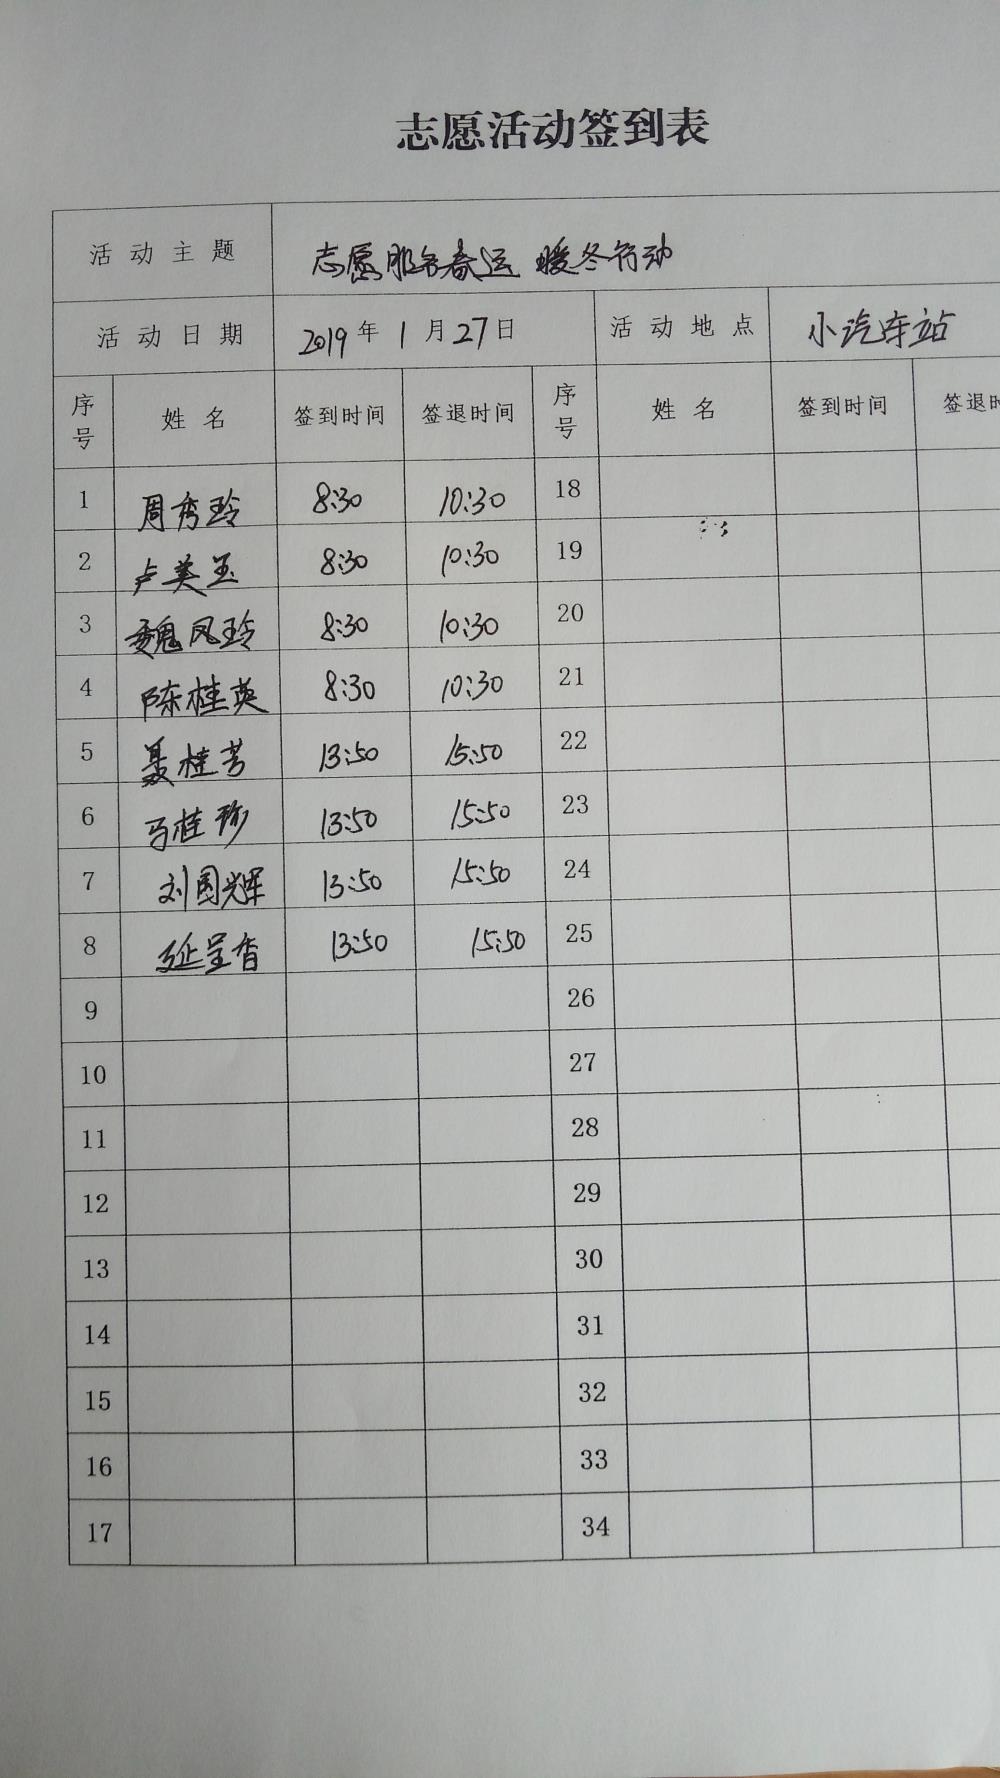 志愿活动签到表
活动主题 志愿服务春运 暖冬行动
活动日期 2019年1月27日 活动地点 小汽车站
序号 姓名 签到时间 签退时间 序号 姓名 签到时间 签退时
1 周秀玲 8:30 10:30 18
2 卢美玉 8:30 10:30 19
3 魏凤玲 8:30 10:30 20
4 陈桂英 8:30 10:30 21
5 聂桂芳 13:50 15:50 22
6 马桂珍 13:50 15:50 23
7 刘国辉 13:50 15:50 24
8 延呈香 13:50 15:50 25
9 26
10 27
11 28
12 29
13 30
14 31
15 32
16 33
17 34